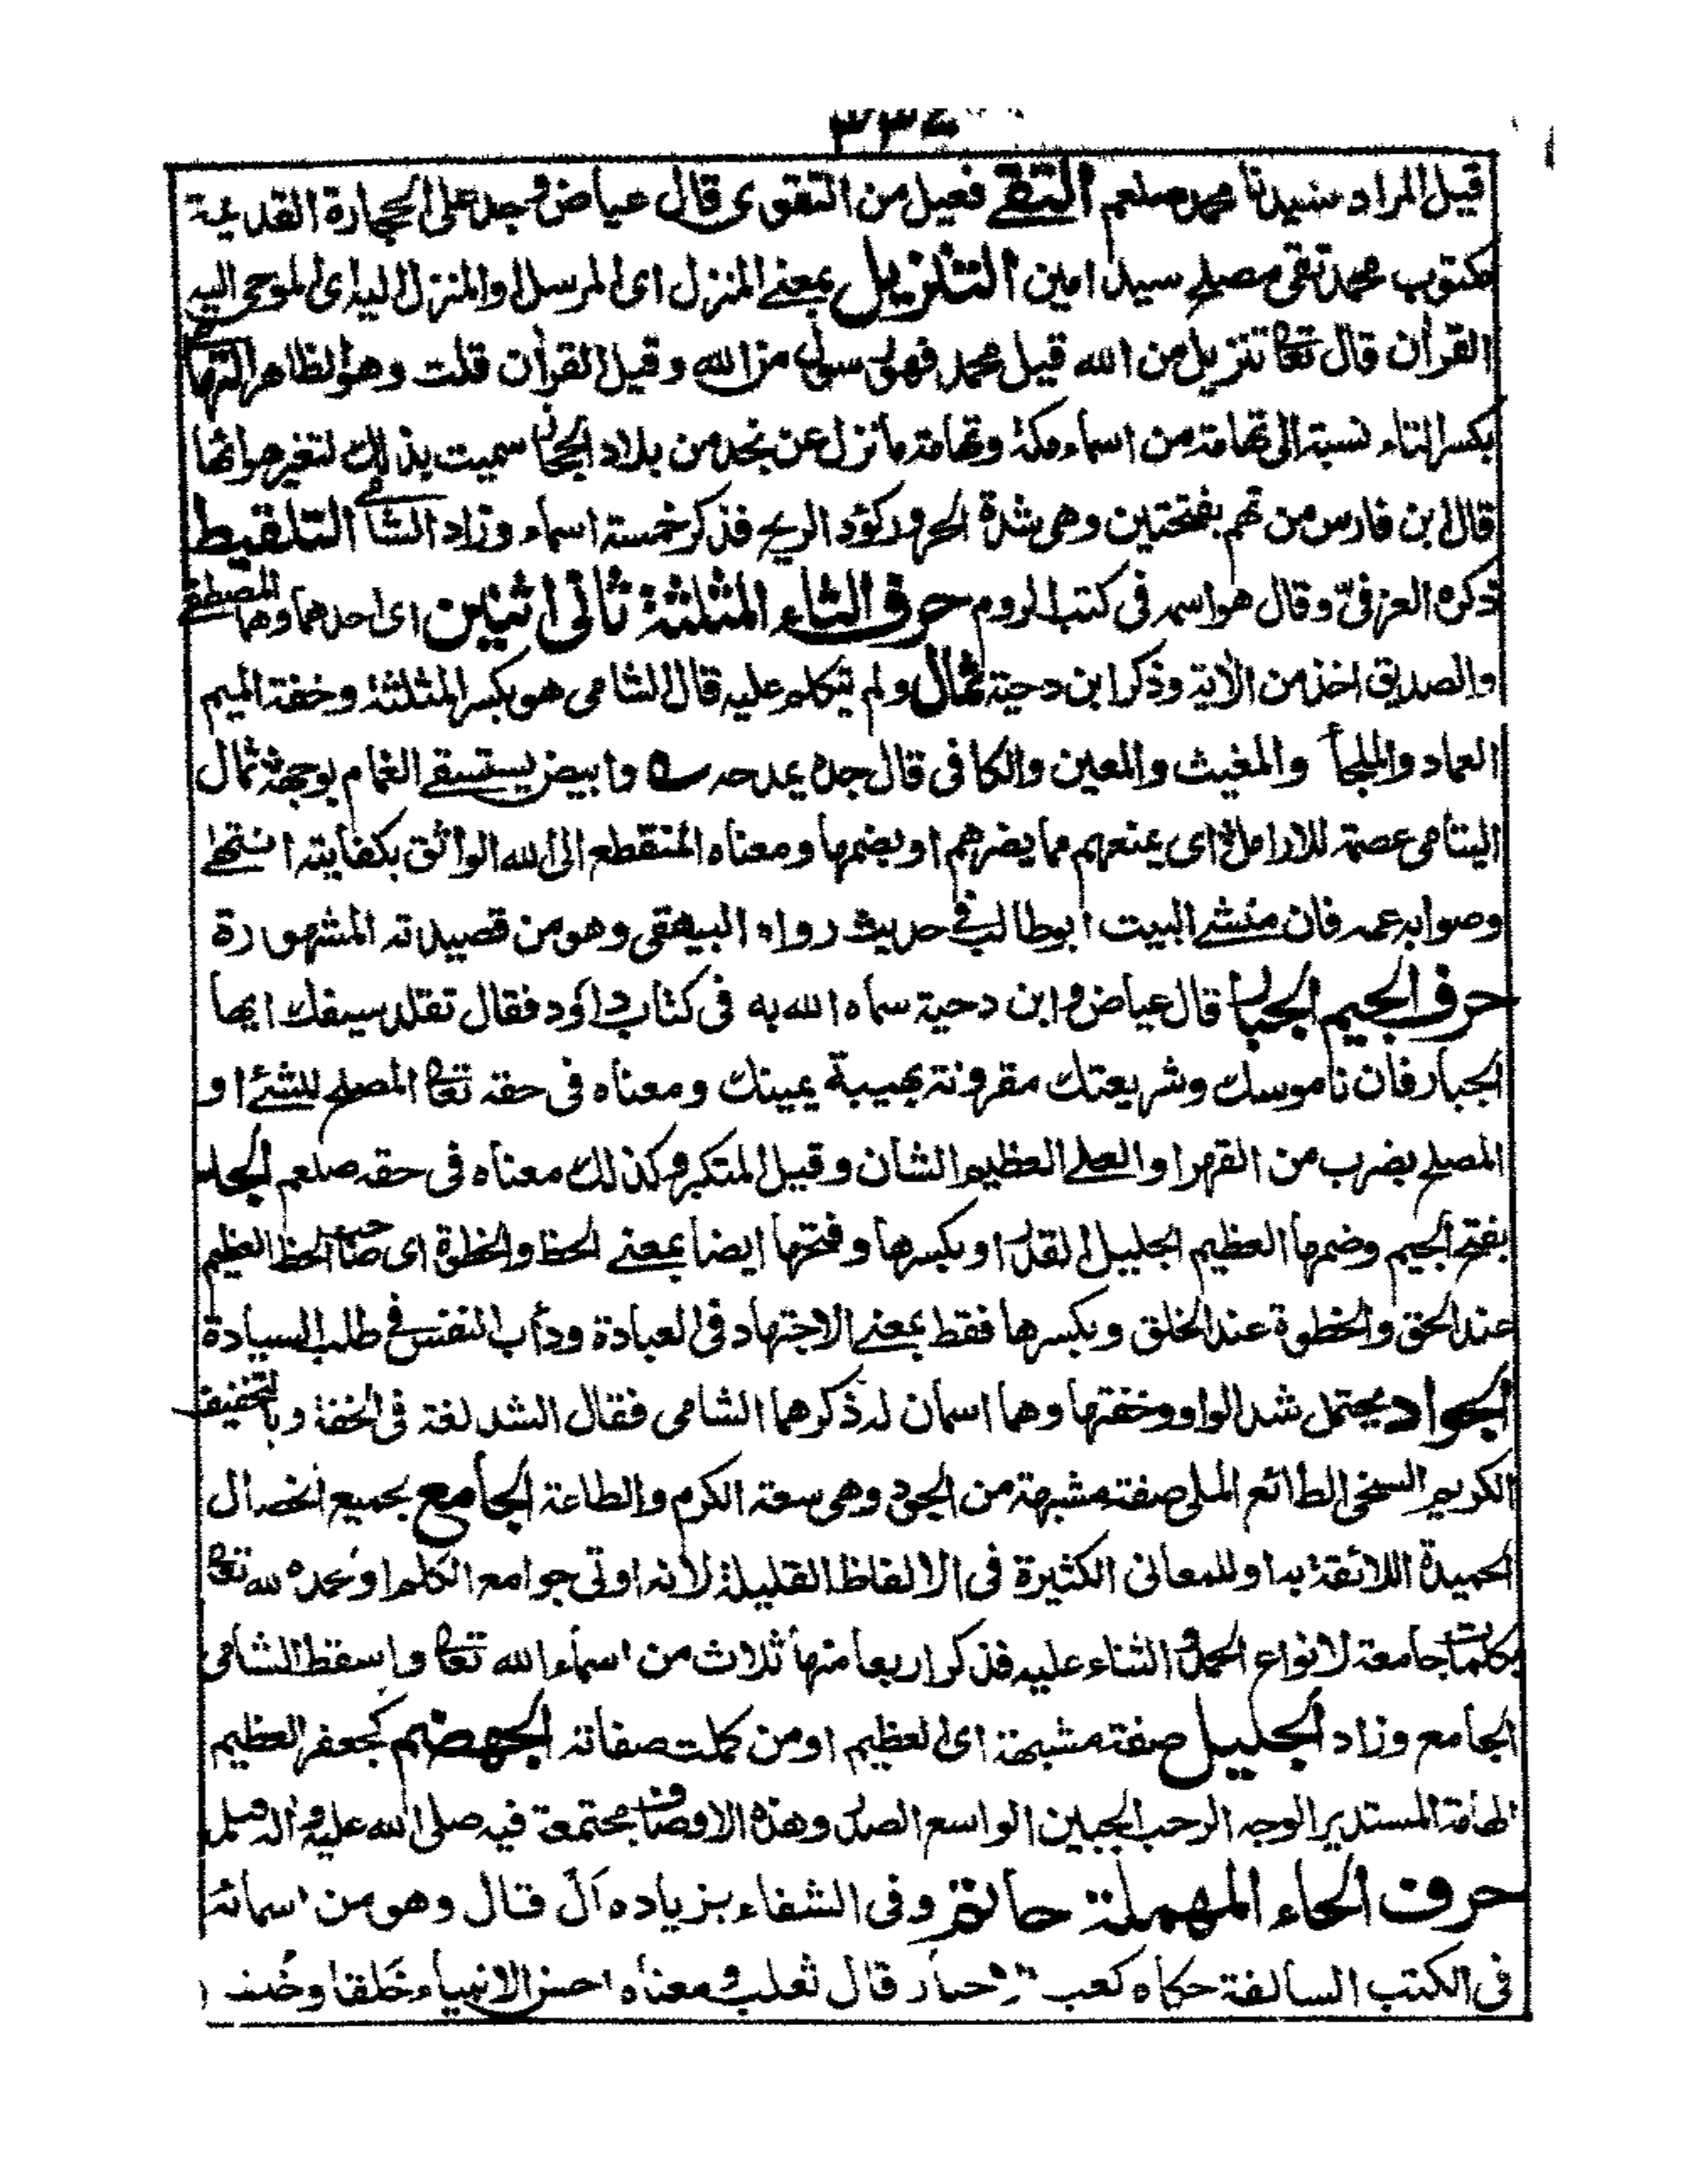 ٣٣٤
قيل المراد سيدنا محمد صلعم التقى فعيل من التقوى قال عياض وجد على الحجارة القديمة
مكتوب محمد تقى مصلح سيد امين التنزيل بمعنى المنزل اى المرسل او المنزل اليه اى الموحى اليه
القرأن قال تعا تنزيل من الله قيل محمد فهو رسول من الله وقيل القرأن قلت وهو الظاهر التهامى
بكسر التاء نسبة الى تهامة من اسماء مكة وتهامة ما نزل عن نجد من بلاد الحجاز سميت بذلك لتغير هوائها
قال ابن فارس من تهم بفتحتين وهى شدة الحر وركود الريح فذكر خمسة اسماء وزاد الشامى التلقيط
ذكره العزفى وقال هو اسمه فى كتب الروم حرف الثاء المثلثة ثانى اثنين اى احدهما وهما المصطفى
والصديق اخذ من الأية وذكر ابن دحية ثمال ولم يتكلم عليه قال الشامى هو بكسر المثلثة وخفة الميم
العماد والملجأ والمغيث والمعين والكافى قال جده يمدحه وابيض يستسقى الغمام بوجهه ثمال
اليتامى عصمة للارامل اى يمنعهم مما يضرهم او بضمها ومعناه المنقطع الى الله الواثق بكفايته انتهى
وصوابه عمه فان منشئ البيت ابو طالب فى حديث رواه البيهقى وهو من قصيدته المشهورة
حرف الجيم الجبار قال عياض وابن دحية سماه الله به فى كتاب داؤد فقال تقلد سيفك ايها
الجبار فان ناموسك وشريعتك مقرونة بهيبة يمينك ومعناه فى حقه تعا المصلح للشئ او
المصلح بضرب من القهر او العلى العظيم الشان وقيل المتكبر وكذلك معناه فى حقه صلعم الجد
بفتح الجيم وضمها العظيم الجليل القدر او بكسرها وفتحها ايضا بمعنى الحظ والحظوة اى صاحب الحظ العظيم
عند الحق والحظوة عند الخلق وبكسرها فقط بمعنى الاجتهاد فى العبادة ودأب النفس فى طلب السيادة
الجواد يحتمل شد الواو وخفتها وهما اسمان له ذكرهما الشامى فقال الشد لغة فى الخفة وبالتخفيف
الكريم السخى الطائع الملى صفة مشبهة من الجود وهى سعة الكرم والطاعة الجامع بجميع الخصال
الحميدة اللائقة به او للمعانى الكثيرة فى الالفاظ القليلة لانه اوتى جوامع الكلم او حمده لله تعا
بكلمات جامعة لانواع الحمد والثناء عليه فذكر اربعا منها ثلاث من اسماء الله تعا واسقط الشامى
الجامع وزاد الجليل صفة مشبهة اى العظيم او من كملت صفاته الجهضم كجعفر العظيم
الهامة المستدير الوجه الرحب الجبين الواسع الصدر وهذه الاوصاف مجتمعة فيه صلى الله عليه واله وسلم
حرف الحاء المهملة حاتم وفى الشفاء بزياده ال قال وهو من اسمائه
فى الكتب السالفة حكاه كعب الاحبار قال ثعلب ومعناه احسن الانبياء خَلقا وخُلقا